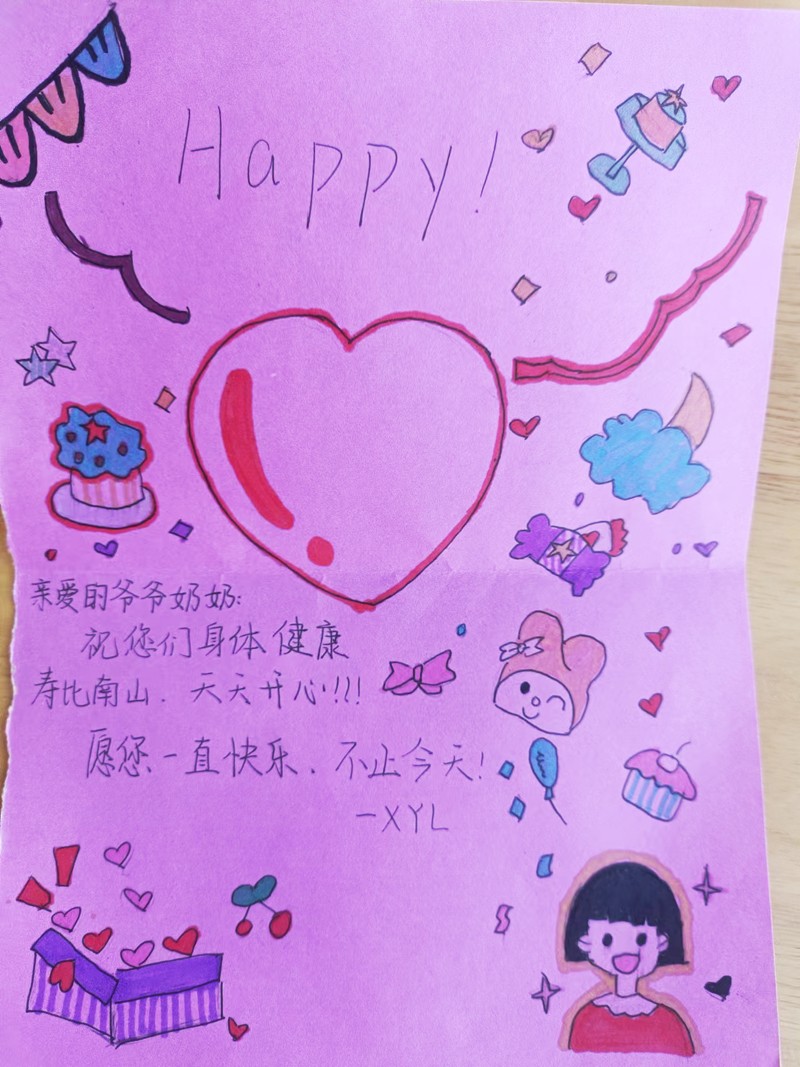 Happy!
亲爱的爷爷奶奶:
祝您们身体健康
寿比南山. 天天开心!!!
愿您一直快乐. 不止今天!
—XYL